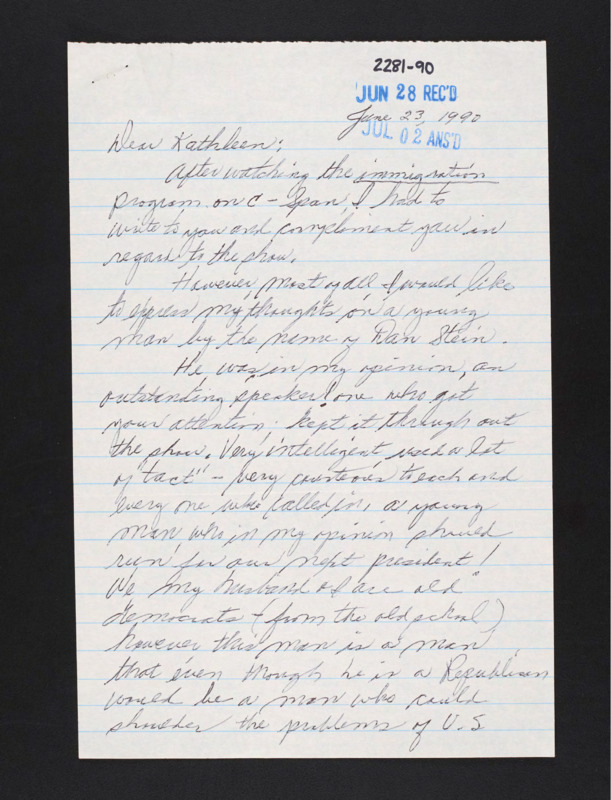 2281-90
JUN 28 REC'D
June 23, 1990
JUL 02 ANS'D
Dear Kathleen;
After watching the immigration
program on C-Span, I had to
write to you and compliment you in
regard to the show.
However, most of all I would like
to express my thoughts on a young
man by the name of Dan Stein.
He was in my opinion, an
outstanding speaker! one who got
your attention; kept it through out
the show. Very intelligent used a lot
of "tact" - very courteous to each and
every one who called in, a young
man, who in my opinion should
run for our next president!
We my husband & I are old
democrats - (from the old school)
however this man is a man,
that even though he is a Republican
would be a man who could
shoulder the problems of U.S